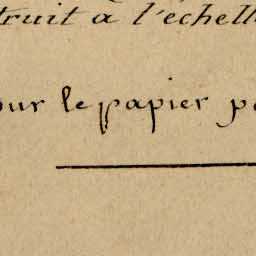 truit a l'échell
our le papier p